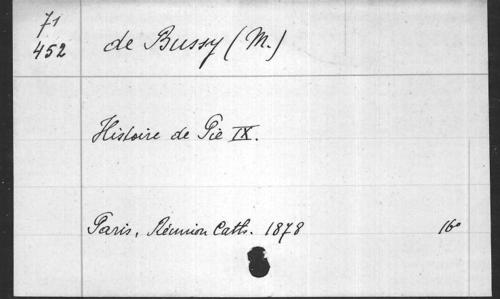 71
452
de Bussy (M.)
Histoire de Pie IX.
Paris, Réunion Cath. 1878 16º